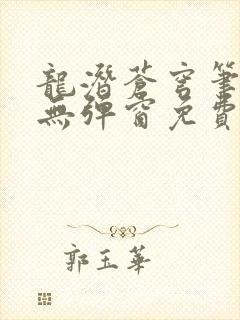 龍潛蒼穹筆
無彈窗免費
郭玉華